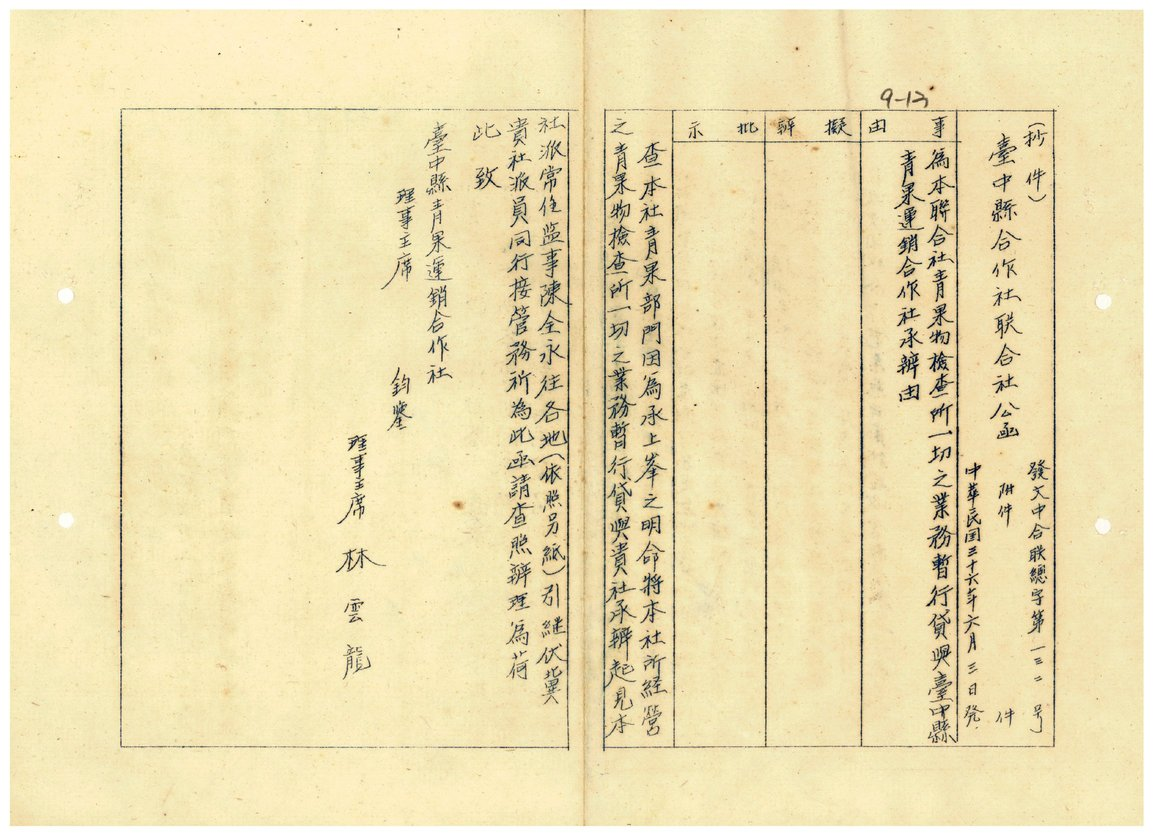 9-13
（抄件）
臺中縣合作社联合社公函
發文中合联總字第一三二号
附件　件
中華民国三十六年六月三日発
事由
為本聯合社青果物檢查所一切之業務暫行貸與臺中縣
青果運銷合作社承辦由
擬辦
批示
查本社青果部門因為承上峯之明命將本社所経營
之青果物檢查所一切之業務暫行貸與貴社承辦起見本
社派常住监事陳全永往各地（依照另紙）引継伏冀
貴社派員同行接管務祈為此函請查照辦理為荷
此致
臺中縣青果運銷合作社
理事主席　鈞鑒
理事主席　林雲龍